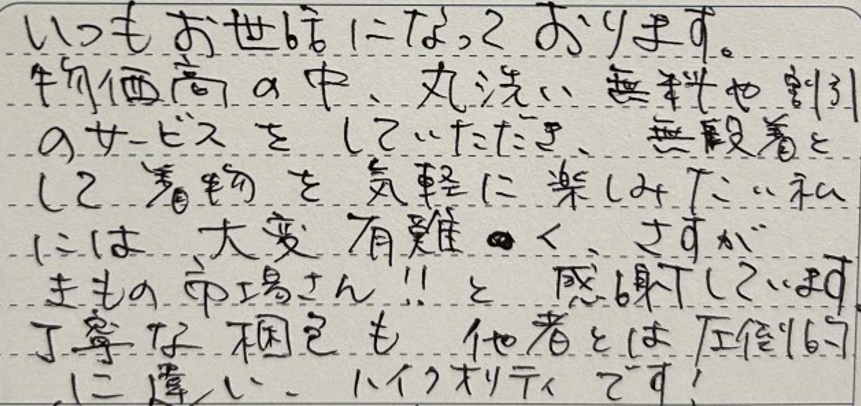 いつもお世話になっております。
物価高の中、丸洗い無料や割引
のサービスをしていただき、無段着と
して着物を気軽に楽しみたい私
には、大変有難く、さすが
きもの市場さん!!と感謝しています。
丁寧な梱包も他者とは圧倒的
に違い、ハイクオリティです!